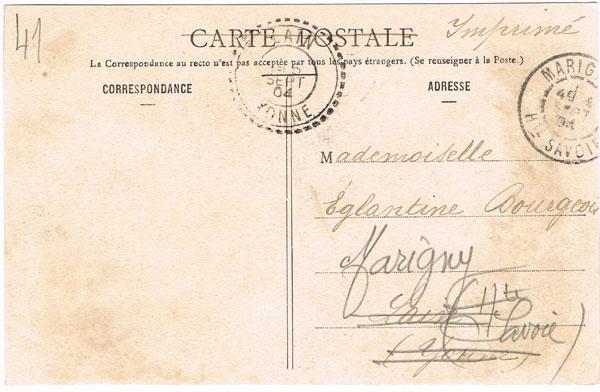 41
Imprimé
CARTE POSTALE
La Correspondance au recto n'est pas acceptée par tous les pays étrangers. (Se renseigner à la Poste.)
CORRESPONDANCE
ADRESSE
SEPT
04
YONNE
MARIG
04
Hte SAVOIE
Mademoiselle
Églantine Bourgeois
Marigny
(Hte Savoie)
(Yonne)